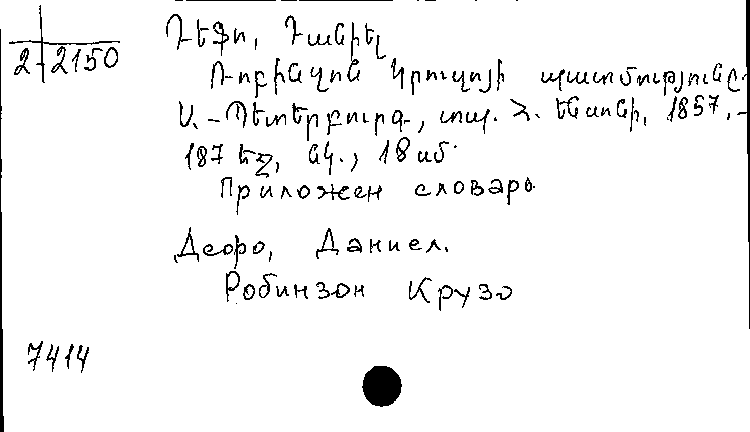 2-2150
Դեֆո, Դանիել
Ռոբինզոն Կրուզոյի պատմությունը
Ս. - Պետերբուրգ, տպ. Հ. Ենսոնի, 1857. -
187 եջ, նկ., 18 սմ.
Приложен словарь
Дефо, Даниел.
Робинзон Крузо
7414